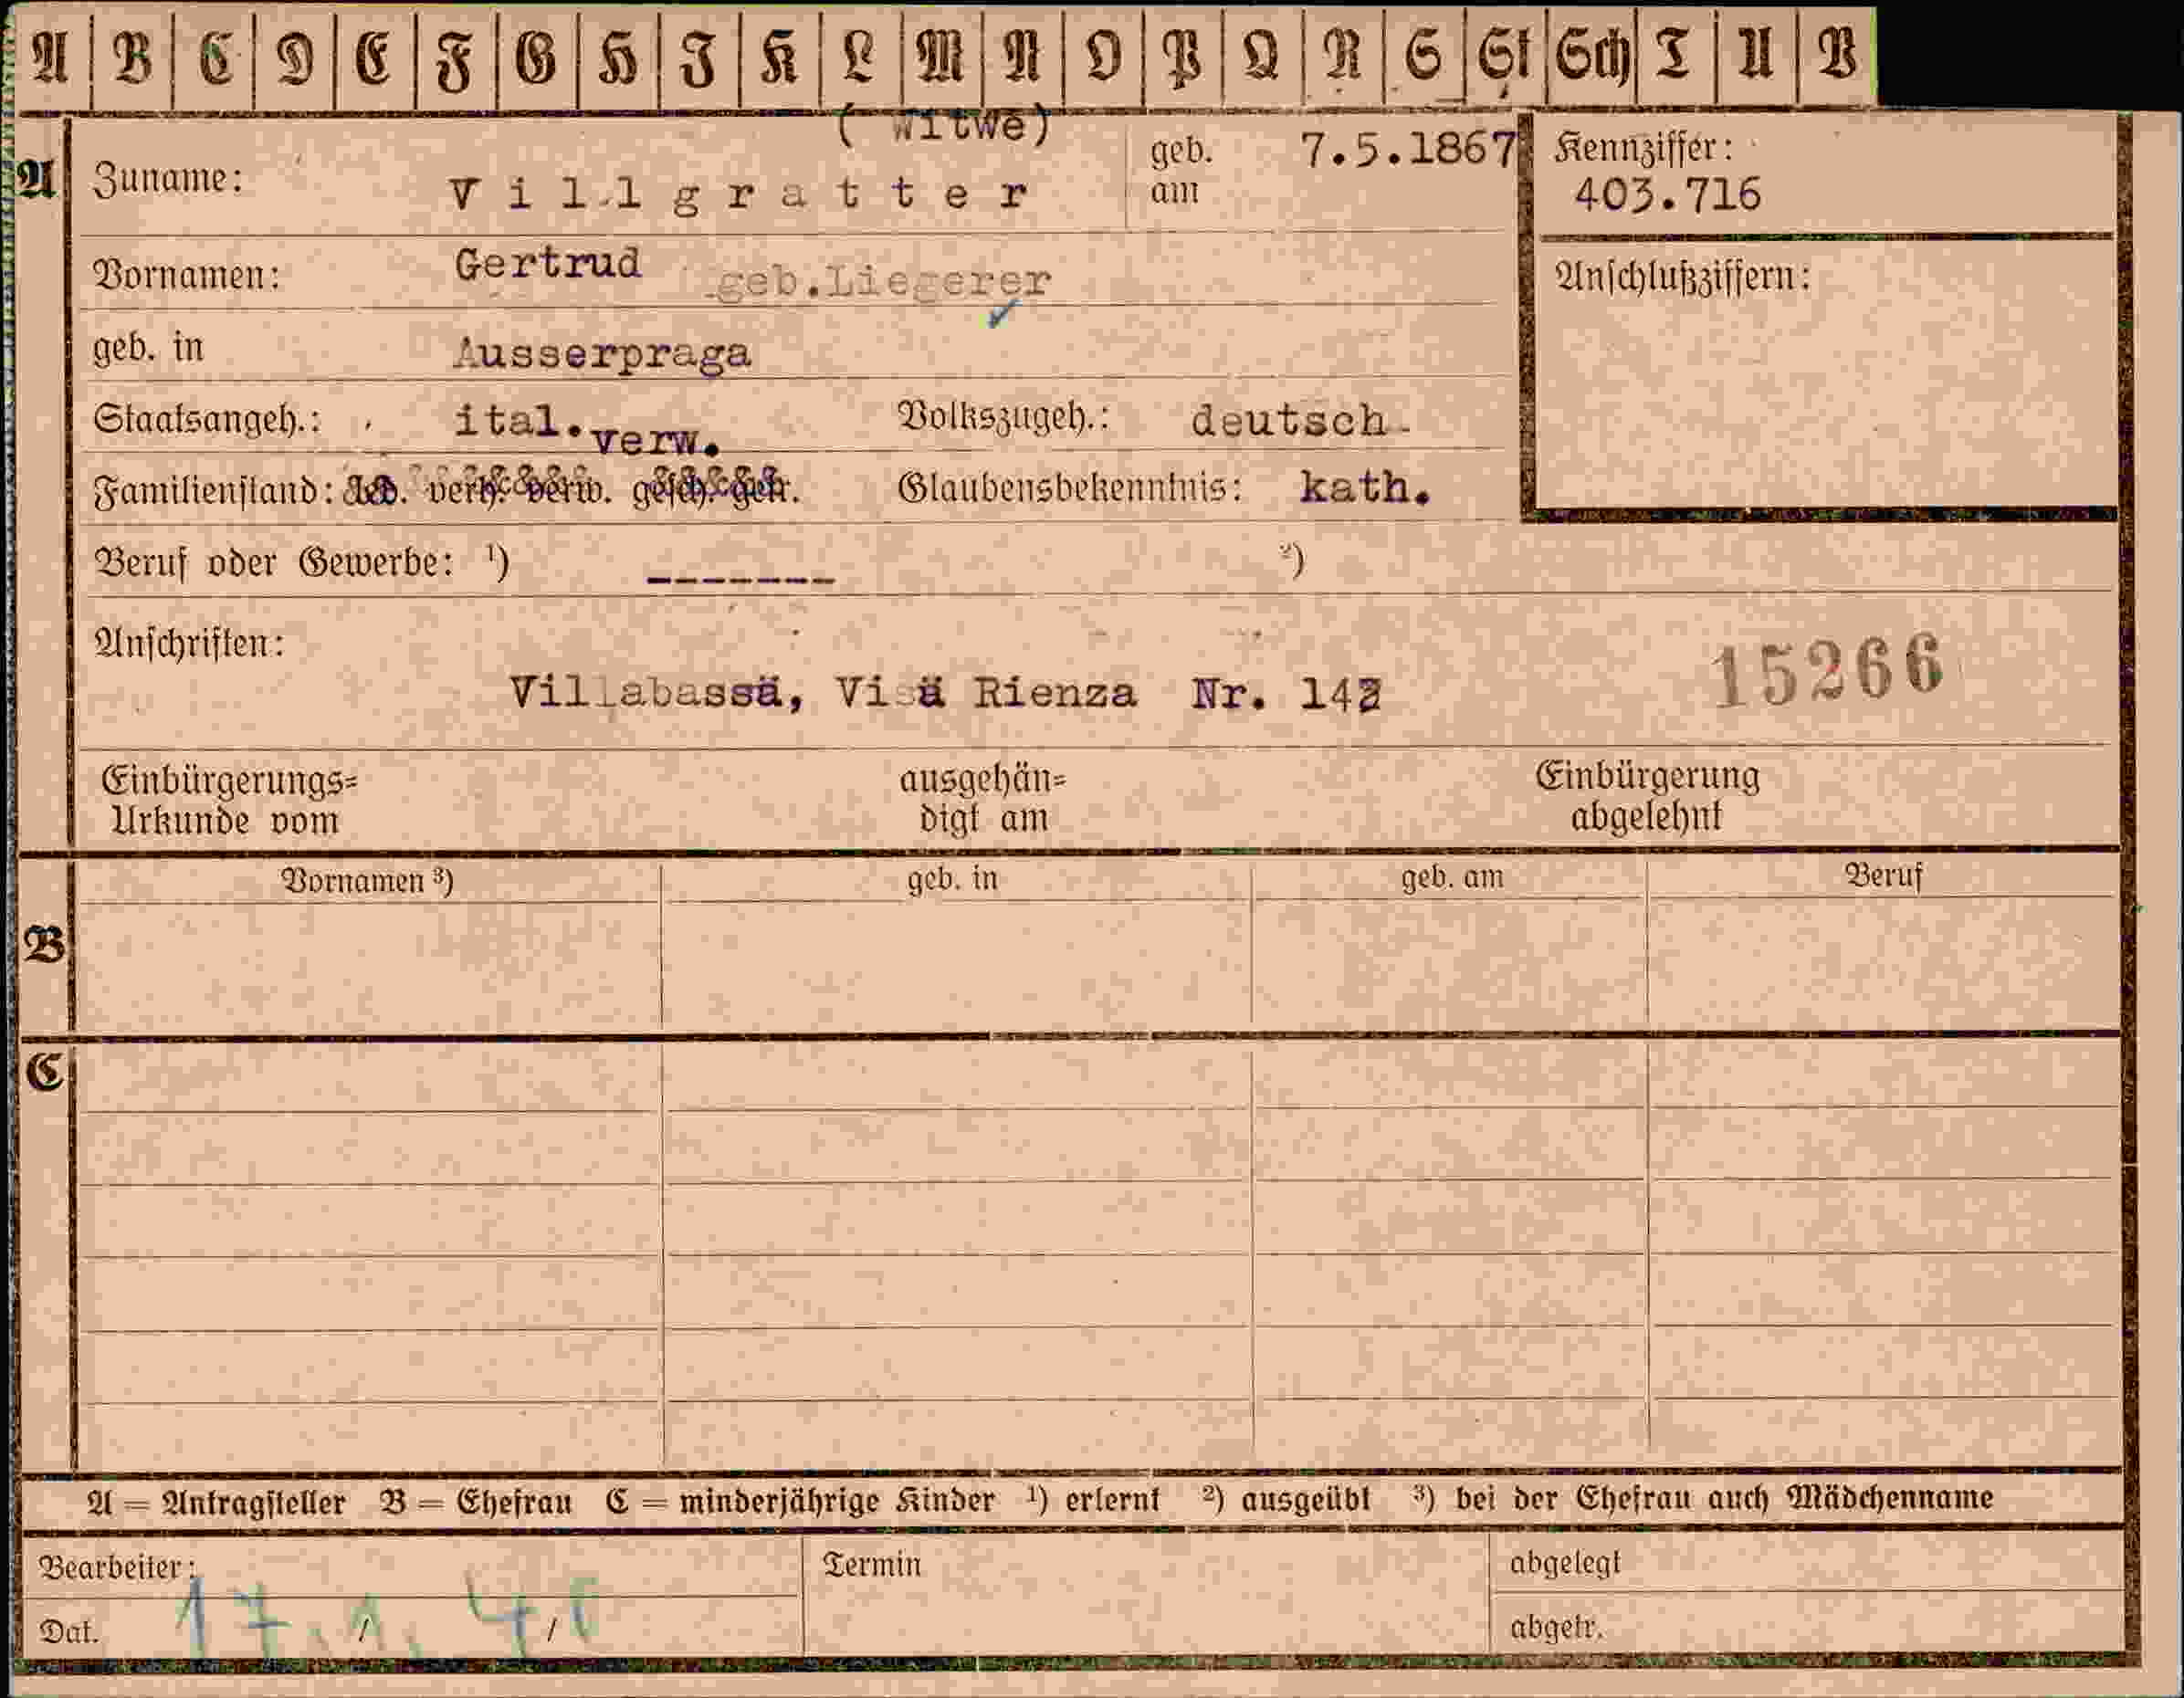 A B C D E F G H I K L M N O P Q R S St Sch T U V
(Witwe)
A Zuname: Villgratter geb. am 7.5.1867 Kennziffer:
403.716
Vornamen: Gertrud geb.Liegerer Anschlußziffern:
geb. in Ausserpraga
Staatsangeh.: ital. Volkszugeh.: deutsch
verw.
Familienstand: led. verh. verw. gesch. getr. Glaubensbekenntnis: kath.
Beruf oder Gewerbe: ¹) ------- ²)
Anschriften:
15266
Villabassa, Via Rienza Nr.
Einbürgerungs= ausgehän= Einbürgerung
Urkunde vom digt am abgelehnt
Vornamen ³) geb. in geb. am Beruf
B
C
A = Antragsteller B = Ehefrau C = minderjährige Kinder ¹) erlernt ²) ausgeübt ³) bei der Ehefrau auch Mädchenname
Bearbeiter: Termin abgelegt
Dat. 17 / 1. / 40 abgetr.